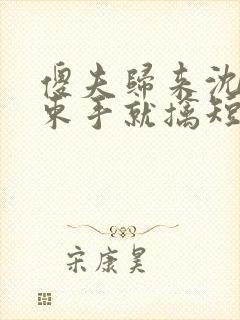 傻夫歸来沈
束手就擒短
宋康昊